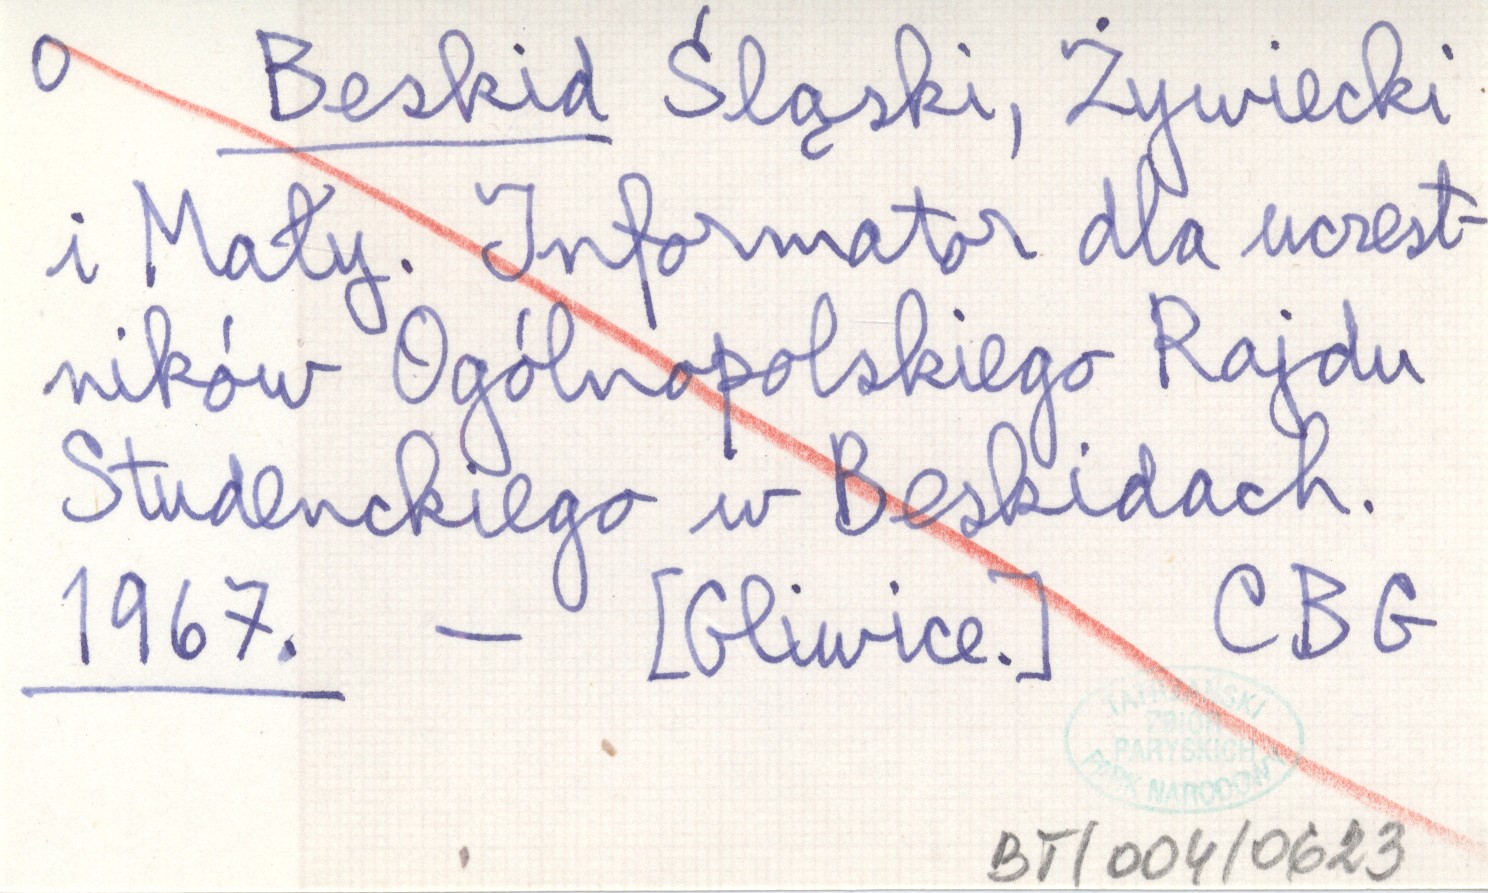 O Beskid Śląski, Żywiecki
i Mały. Informator dla uczest-
ników Ogólnopolskiego Rajdu
Studenckiego w Beskidach.
1967. — [Gliwice.] CBG
TATRZAŃSKI
ZBIÓR
PARYSKICH
PARK NARODOWY
BT/004/0623